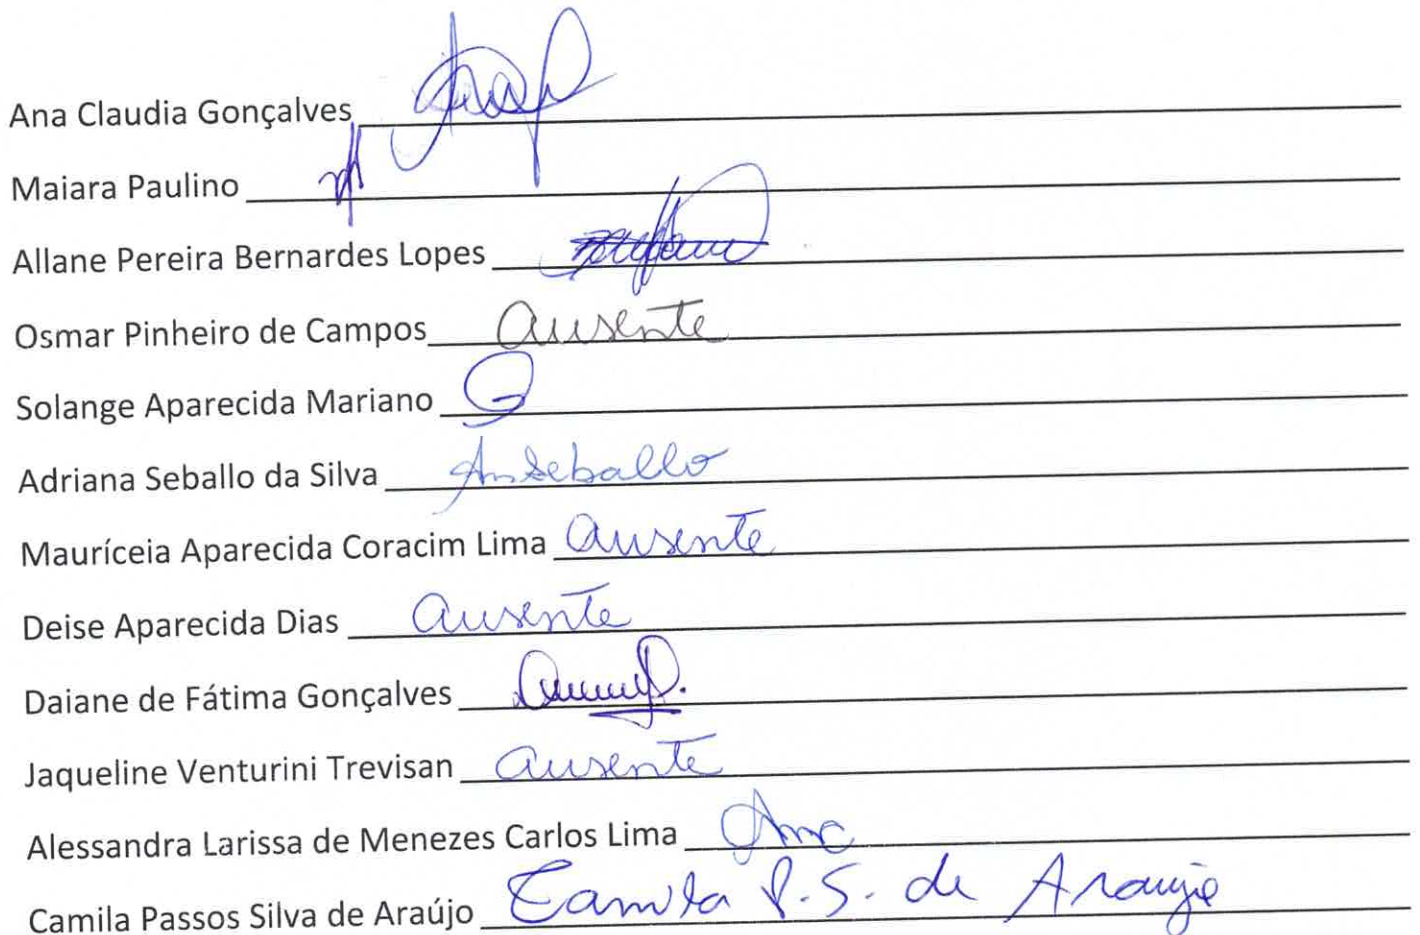 Ana Claudia Gonçalves
Maiara Paulino
Allane Pereira Bernardes Lopes
Osmar Pinheiro de Campos ausente
Solange Aparecida Mariano
Adriana Seballo da Silva Anseballo
Mauríceia Aparecida Coracim Lima ausente
Deise Aparecida Dias ausente
Daiane de Fátima Gonçalves
Jaqueline Venturini Trevisan ausente
Alessandra Larissa de Menezes Carlos Lima
Camila Passos Silva de Araújo Camila P. S. de Araujo